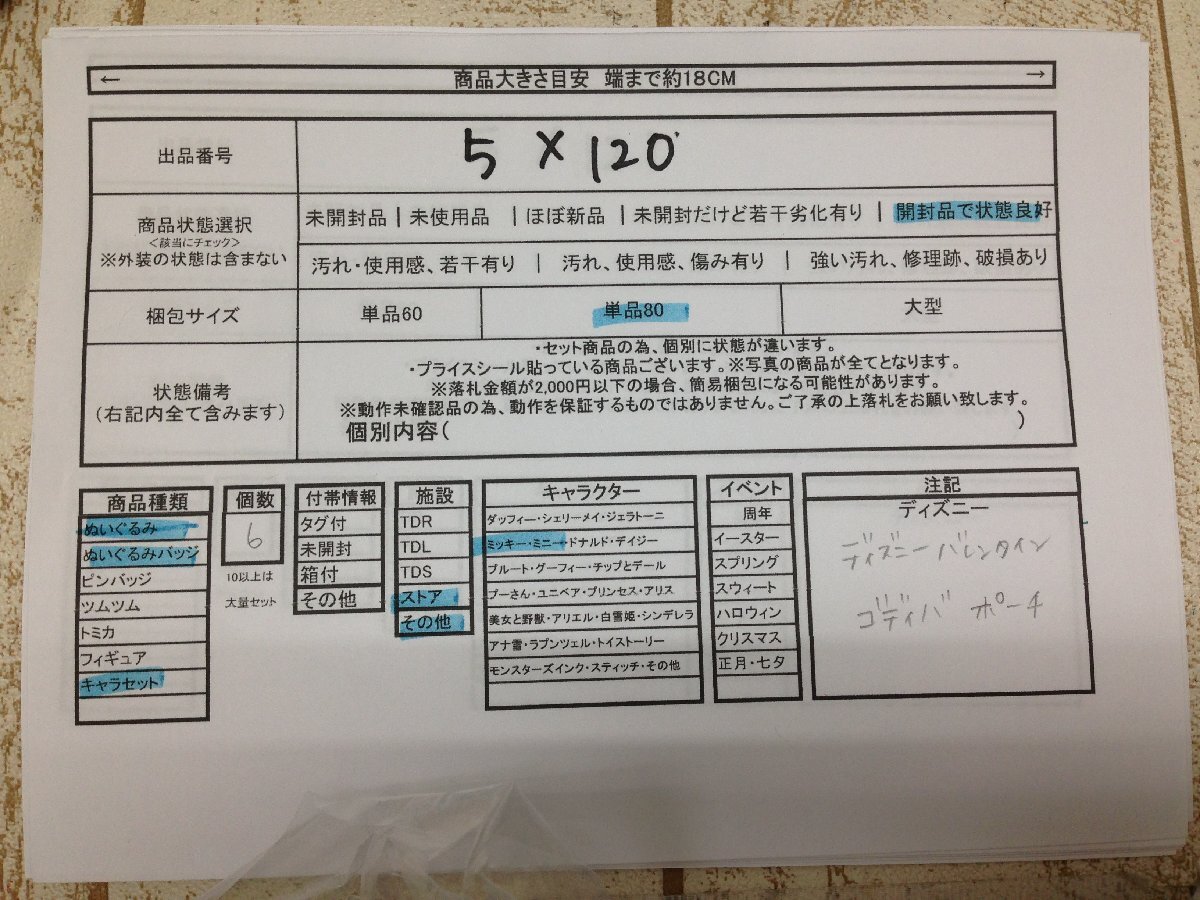 ← 商品大きさ目安 端まで約18CM →
出品番号
5 × 120
商品状態選択
<該当にチェック>
※外装の状態は含まない
未開封品 | 未使用品 | ほぼ新品 | 未開封だけど若干劣化有り | 開封品で状態良好
汚れ・使用感、若干有り | 汚れ、使用感、傷み有り | 強い汚れ、修理跡、破損あり
梱包サイズ
単品60
単品80
大型
状態備考
(右記内全て含みます)
・セット商品の為、個別に状態が違います。
・プライスシール貼っている商品ございます。※写真の商品が全てとなります。
※落札金額が2,000円以下の場合、簡易梱包になる可能性があります。
※動作未確認品の為、動作を保証するものではありません。ご了承の上落札をお願い致します。
個別内容( )
商品種類
ぬいぐるみ
ぬいぐるみバッジ
ピンバッジ
ツムツム
トミカ
フィギュア
キャラセット
個数
6
10以上は
大量セット
付帯情報
タグ付
未開封
箱付
その他
施設
TDR
TDL
TDS
ストア
その他
キャラクター
ダッフィー・シェリーメイ・ジェラトーニ
ミッキー・ミニー・ドナルド・デイジー
プルート・グーフィー・チップとデール
プーさん・ユニベア・プリンセス・アリス
美女と野獣・アリエル・白雪姫・シンデレラ
アナ雪・ラプンツェル・トイストーリー
モンスターズインク・スティッチ・その他
イベント
周年
イースター
スプリング
スウィート
ハロウィン
クリスマス
正月・七夕
注記
ディズニー
ディズニーバレンタイン
ゴディバ ポーチ